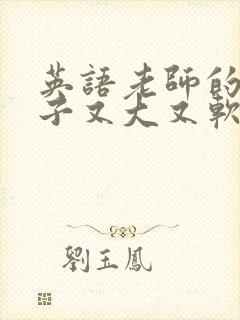 英語老師的
子又大又軟
劉玉鳳